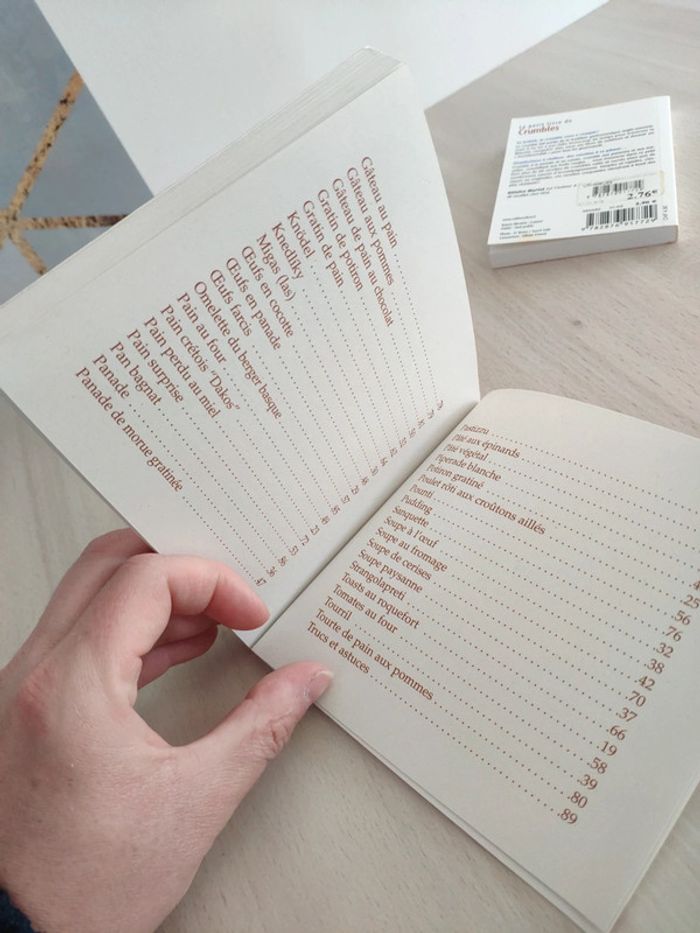 Gâteau au pain
Gâteau aux pommes
Gâteau de pain au chocolat
Gratin de potiron
Gratin de pain
Knödel
Knedliky
Migas (las)
Œufs en cocotte
Œufs en panade
Œufs farcis
Omelette du berger basque
Pain au four
Pain crétois "Dakos"
Pain perdu au miel
Pain surprise
Pan bagnat
Panade
Panade de morue gratinée 47
Pastizzu
Pâté aux épinards
Pâté végétal
Piperade blanche
Potiron gratiné
Poulet rôti aux croûtons aillés 25
Pounti 56
Pudding 76
Sanquette 32
Soupe à l'œuf 38
Soupe au fromage 42
Soupe de cerises 70
Soupe paysanne 37
Strangolapreti 66
Toasts au roquefort 19
Tomates au four 58
Tourril 39
Tourte de pain aux pommes 80
Trucs et astuces 89
Le petit livre de
Crumbles
2.76€